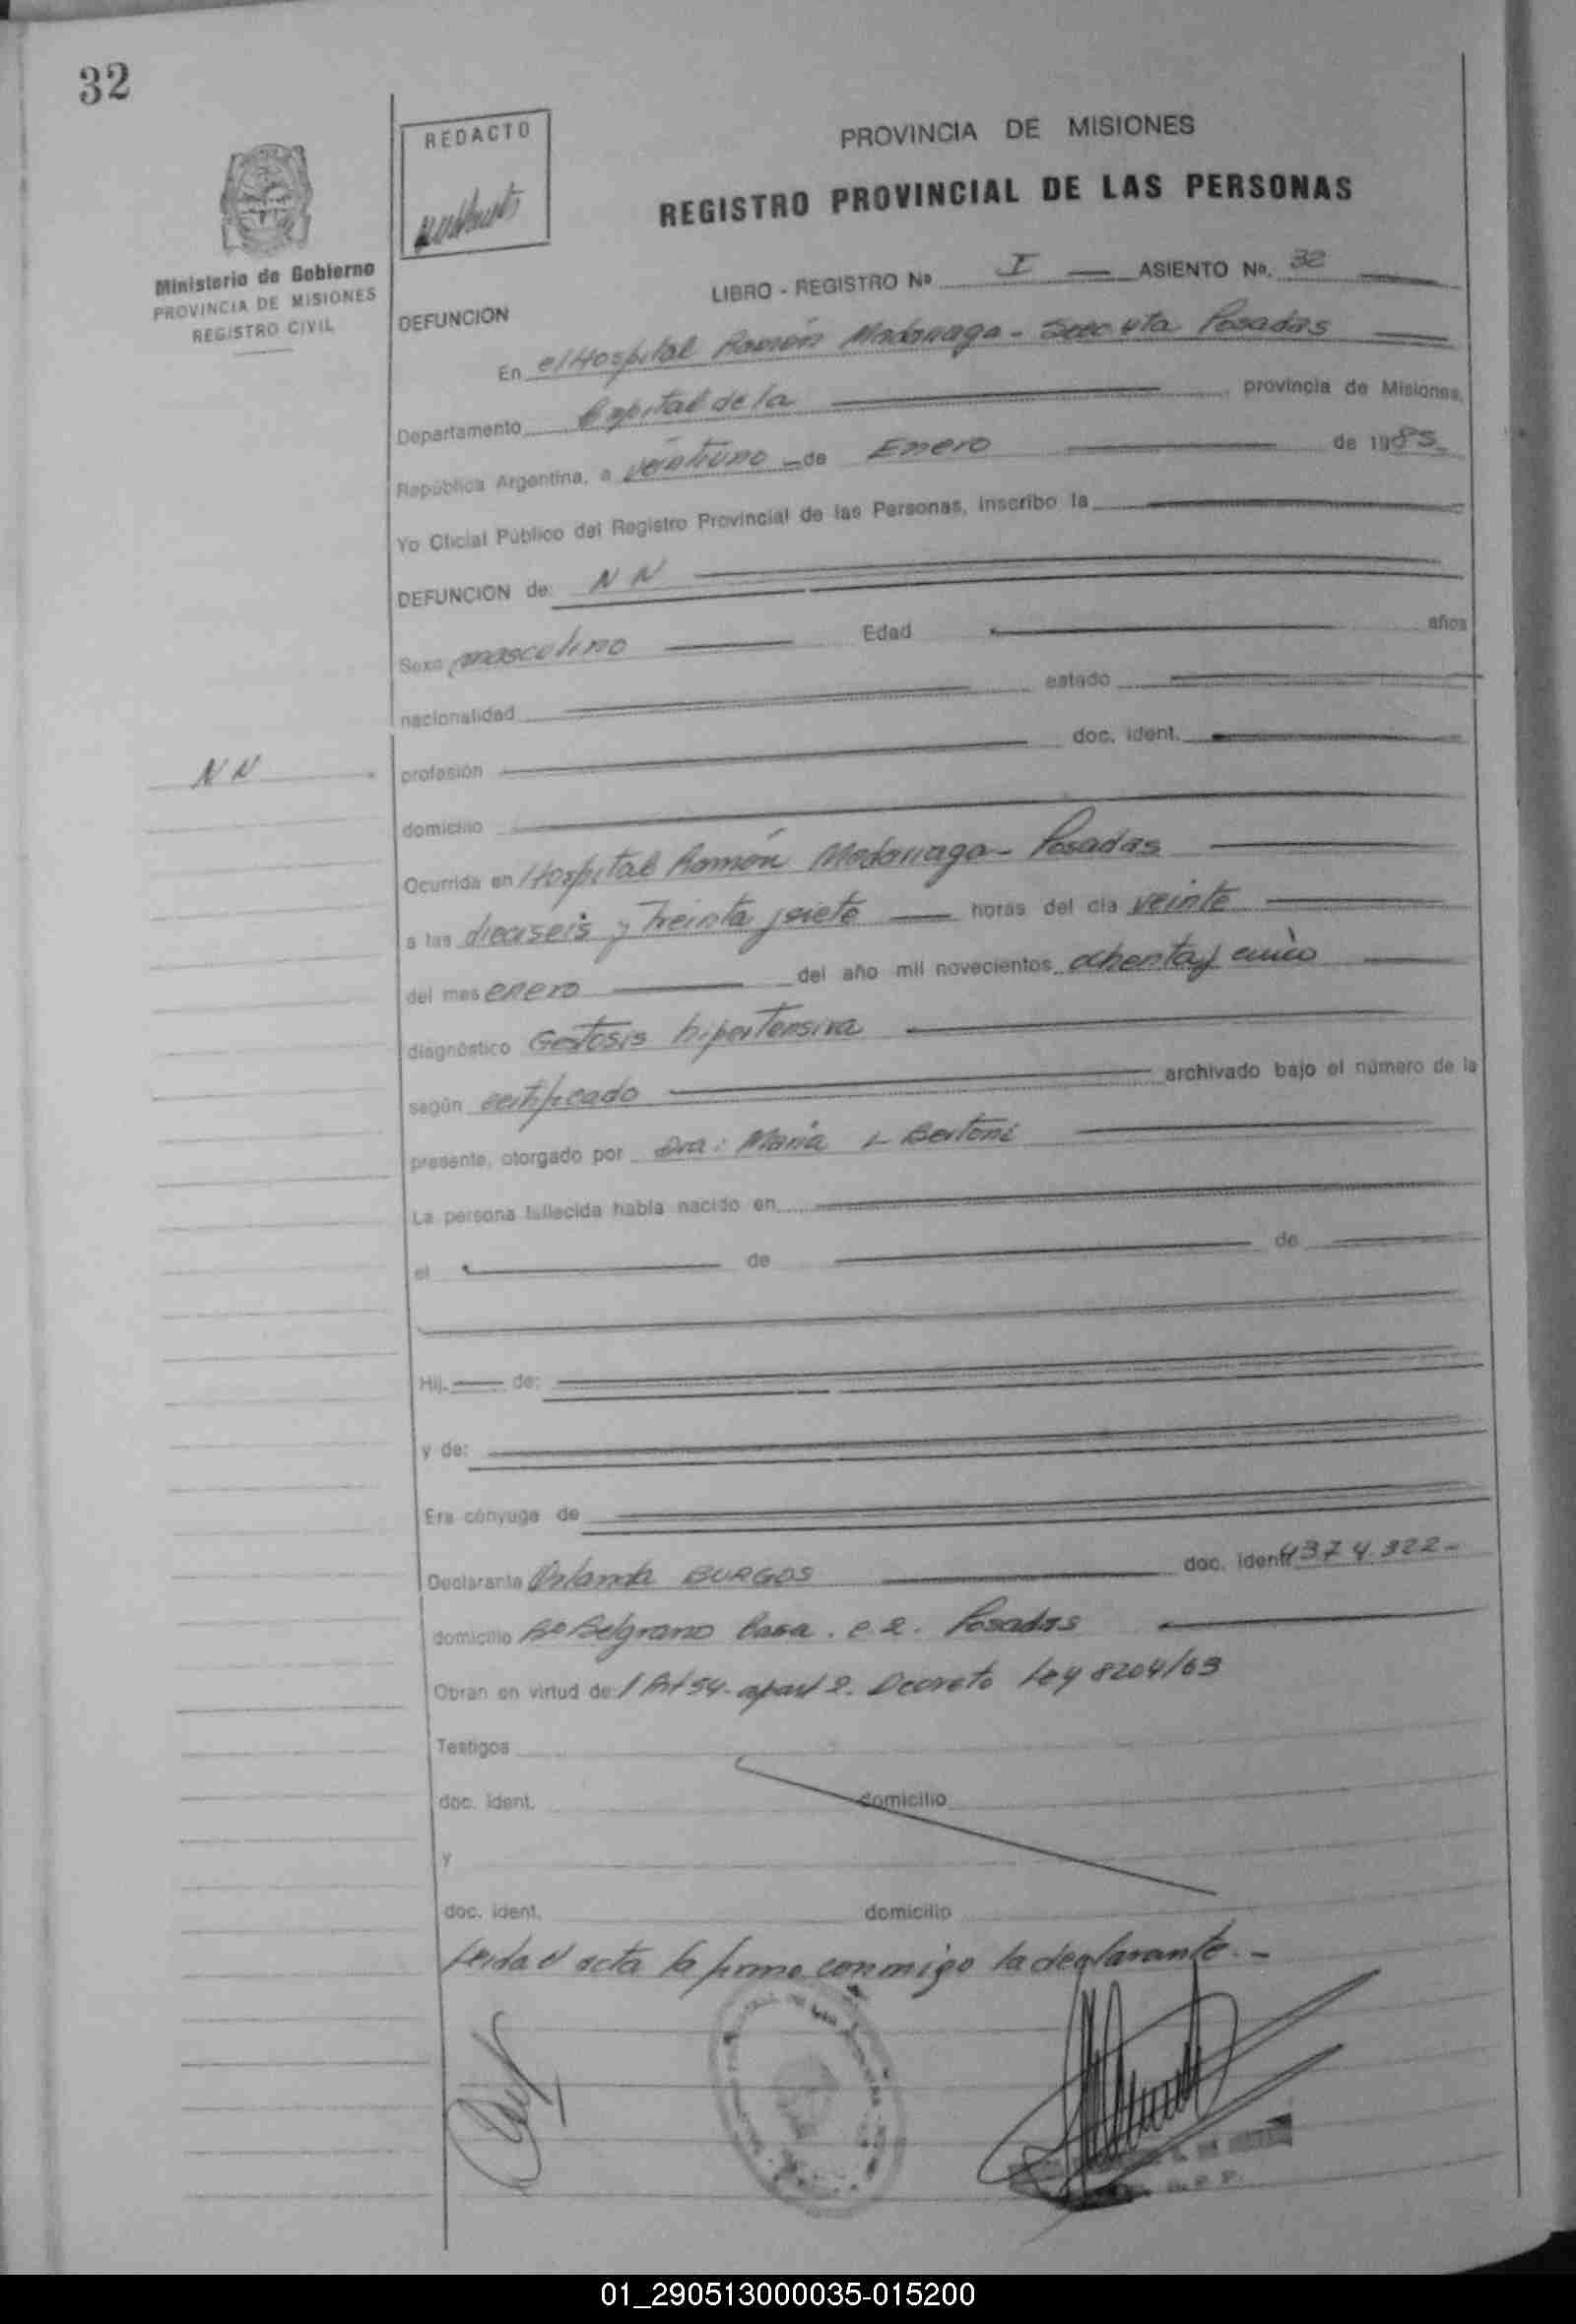 32
REDACTO
PROVINCIA DE MISIONES
REGISTRO PROVINCIAL DE LAS PERSONAS
Ministerio de Gobierno
PROVINCIA DE MISIONES
REGISTRO CIVIL
LIBRO - REGISTRO Nº I ASIENTO Nº. 32
DEFUNCION
En el Hospital Ramón Madariaga - Secc 4ta Posadas
Departamento Capital de la provincia de Misiones,
República Argentina, a veintiuno de Enero de 1985
Yo Oficial Público del Registro Provincial de las Personas, inscribo la
DEFUNCION de: N N
Sexo masculino Edad años
nacionalidad estado
N N
profesión doc. ident.
domicilio
Ocurrida en Hospital Ramón Madariaga - Posadas
a las dieciseis y treinta y siete horas del día veinte
del mes enero del año mil novecientos ochenta y cinco
diagnóstico Gestosis hipertensiva
según certificado archivado bajo el número de la
presente, otorgado por Dra: Maria L Bertoni
La persona fallecida había nacido en
el de de
Hij. de:
y de:
Era cónyuge de
Declarante BURGOS doc. ident. 4374.322-
domicilio Bº Belgrano Casa. Posadas
Obran en virtud de: l Art 54. apart 2. Decreto Ley 8204/63
Testigos
doc. ident. domicilio
y
doc. ident. domicilio
Leida el acta la firma conmigo la declarante.-
01_290513000035-015200